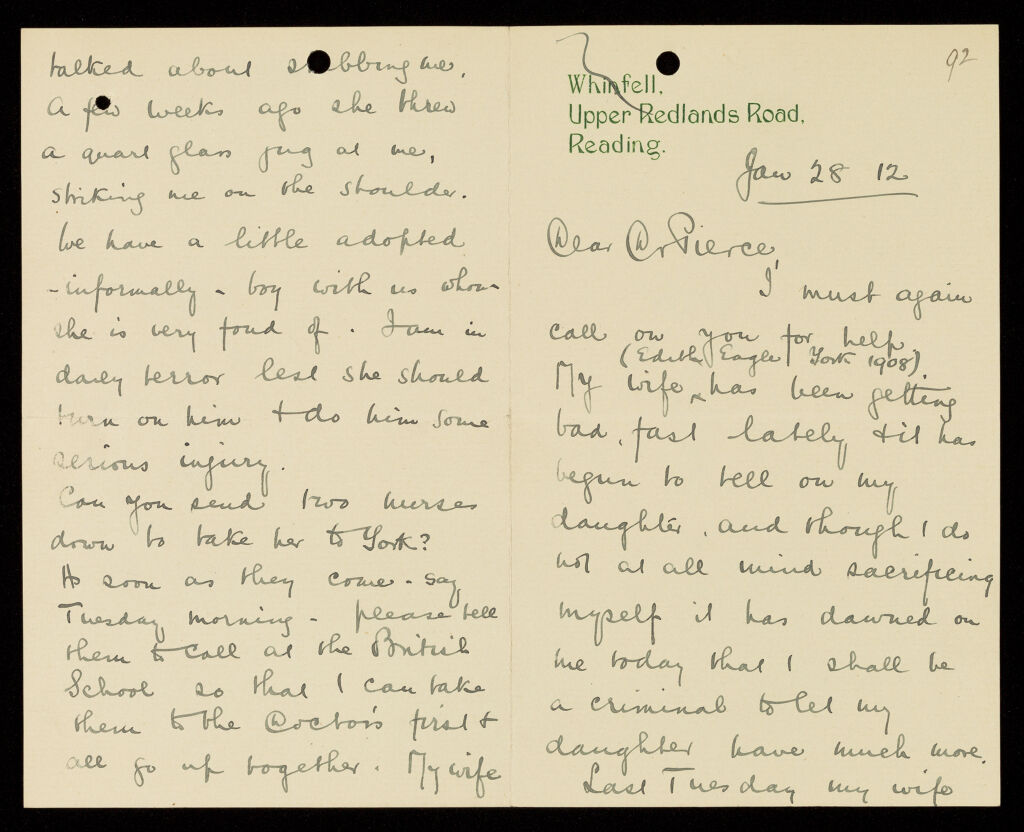 92
Whinfell,
Upper Redlands Road,
Reading.
Jan 28 12
Dear Dr Pierce,
I must again
call on you for help.
(Edith Eagle York 1908).
My wife x has been getting
bad, fast lately & it has
begun to tell on my
daughter, and though I do
not at all mind sacrificing
myself it has dawned on
me today that I shall be
a criminal to let my
daughter have much more.
Last Tuesday my wife
talked about stabbing me.
A few weeks ago she threw
a quart glass jug at me,
striking me on the shoulder.
We have a little adopted
- informally - boy with us whom
she is very fond of. I am in
daily terror lest she should
turn on him & do him some
serious injury.
Can you send two nurses
down to take her to York?
As soon as they come - say
Tuesday morning - please tell
them to call at the British
School so that I can take
them to the Doctor's first &
all go up together. My wife